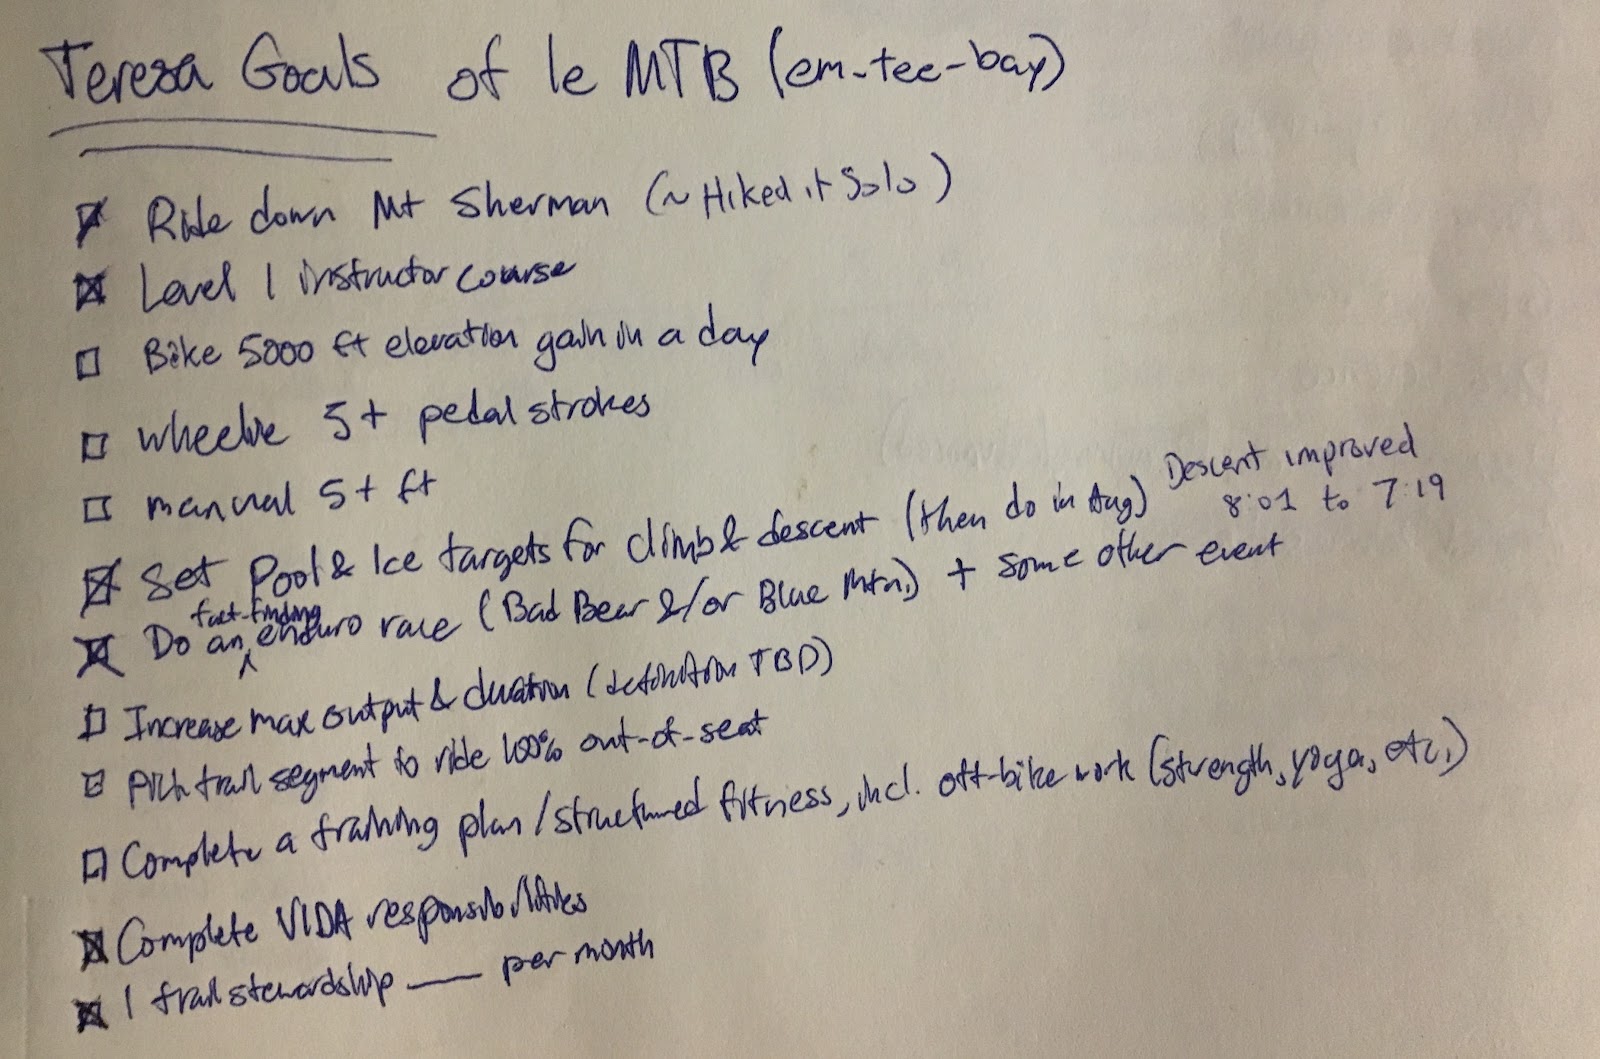 Teresa Goals of le MTB (em-tee-bay)
Ride down Mt Sherman (~ Hiked it Solo)
Level 1 instructor course
Bike 5000 ft elevation gain in a day
wheelie 5+ pedal strokes
manual 5+ ft
Set Pool & Ice targets for climb & descent (then do in Aug) Descent improved
8:01 to 7:19
Do an fact-finding enduro race (Bad Bear &/or Blue Mtn.) + some other event
Increase max output & duration (definition TBD)
Pick trail segment to ride 100% out-of-seat
Complete a training plan/structured fitness, incl. off-bike work (strength, yoga, etc.)
Complete VIDA responsibilities
1 trail stewardship ___ per month